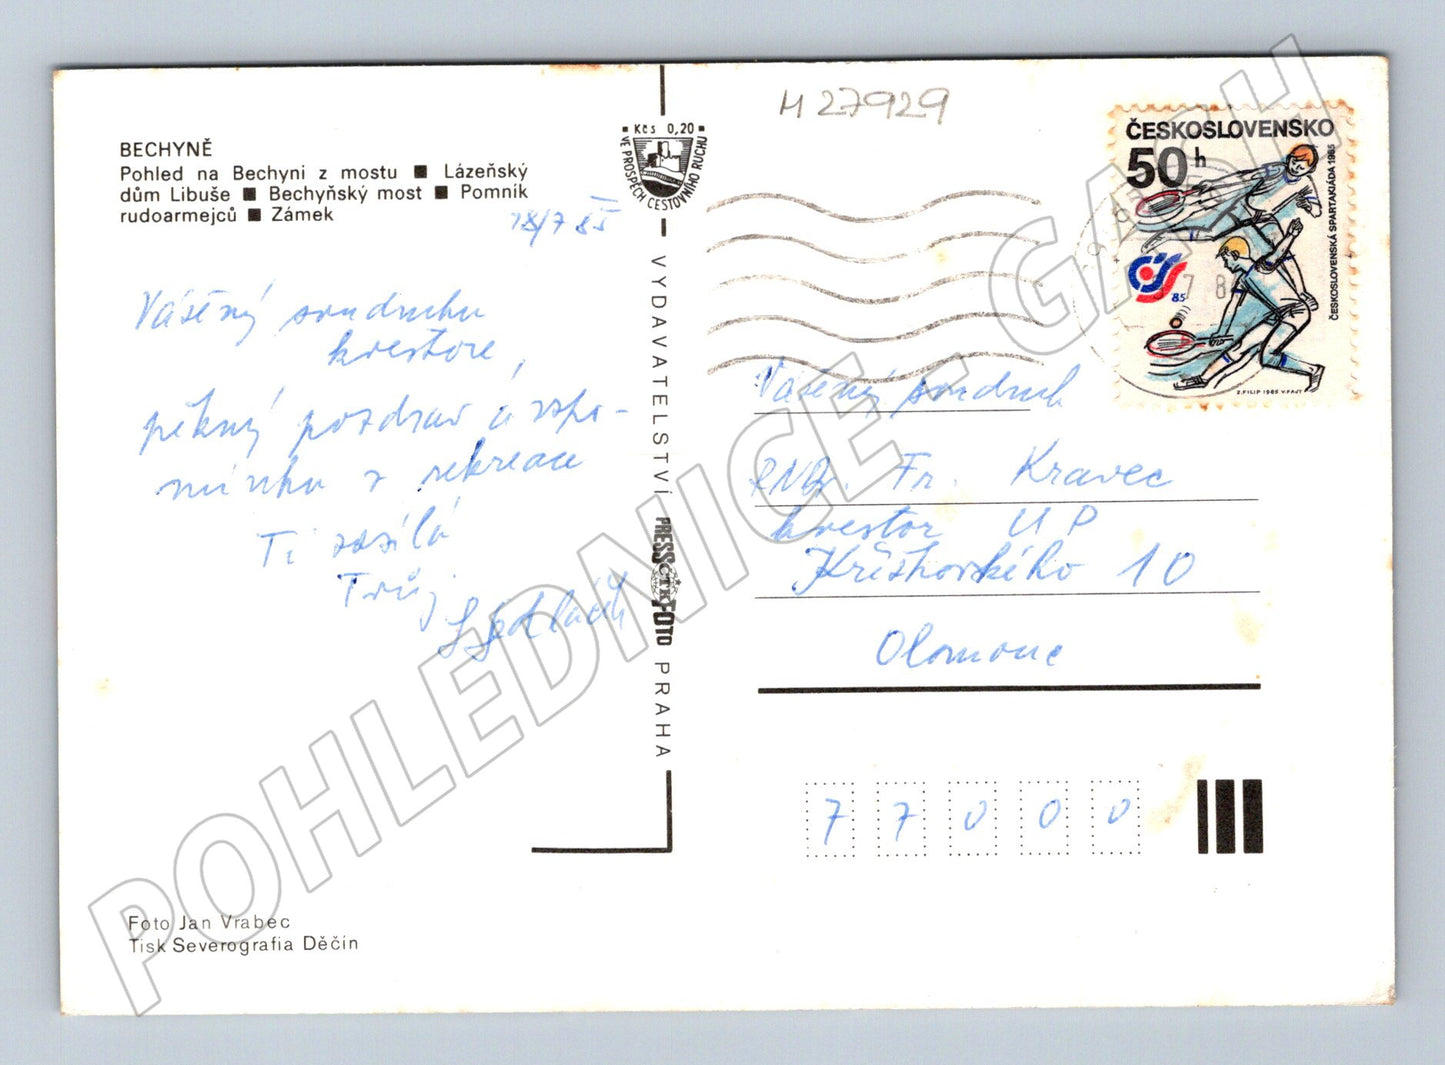 BECHYNĚ
Pohled na Bechyni z mostu ■ Lázeňský
dům Libuše ■ Bechyňský most ■ Pomník
rudoarmejců ■ Zámek
18/7 85
Vážený soudruhu
kvestore,
pěkný pozdrav a vzpo-
mínku z rekreace
Ti zasílá
Tvůj
Foto Jan Vrabec
Tisk Severografia Děčín
Kčs 0,20
VE PROSPĚCH CESTOVNÍHO RUCHU
VYDAVATELSTVÍ PRESSFOTO PRAHA
ČTK
M 27929
ČESKOSLOVENSKO
50 h
ČESKOSLOVENSKÁ SPARTAKIÁDA 1985
85
Z. FILIP 1985 V. FAJT
Vážený soudruh
RNDr. Fr. Kravec
kvestor UP
Křížkovského 10
Olomouc
7 7 0 0 0
POHLEDNICE - GASH